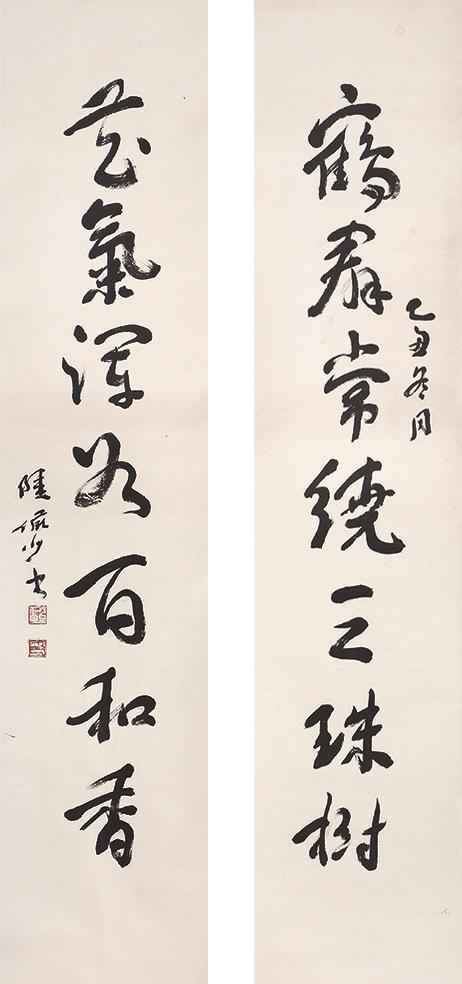 鶴群常繞三珠樹
乙丑冬月
花氣渾如百和香
陸儼少書